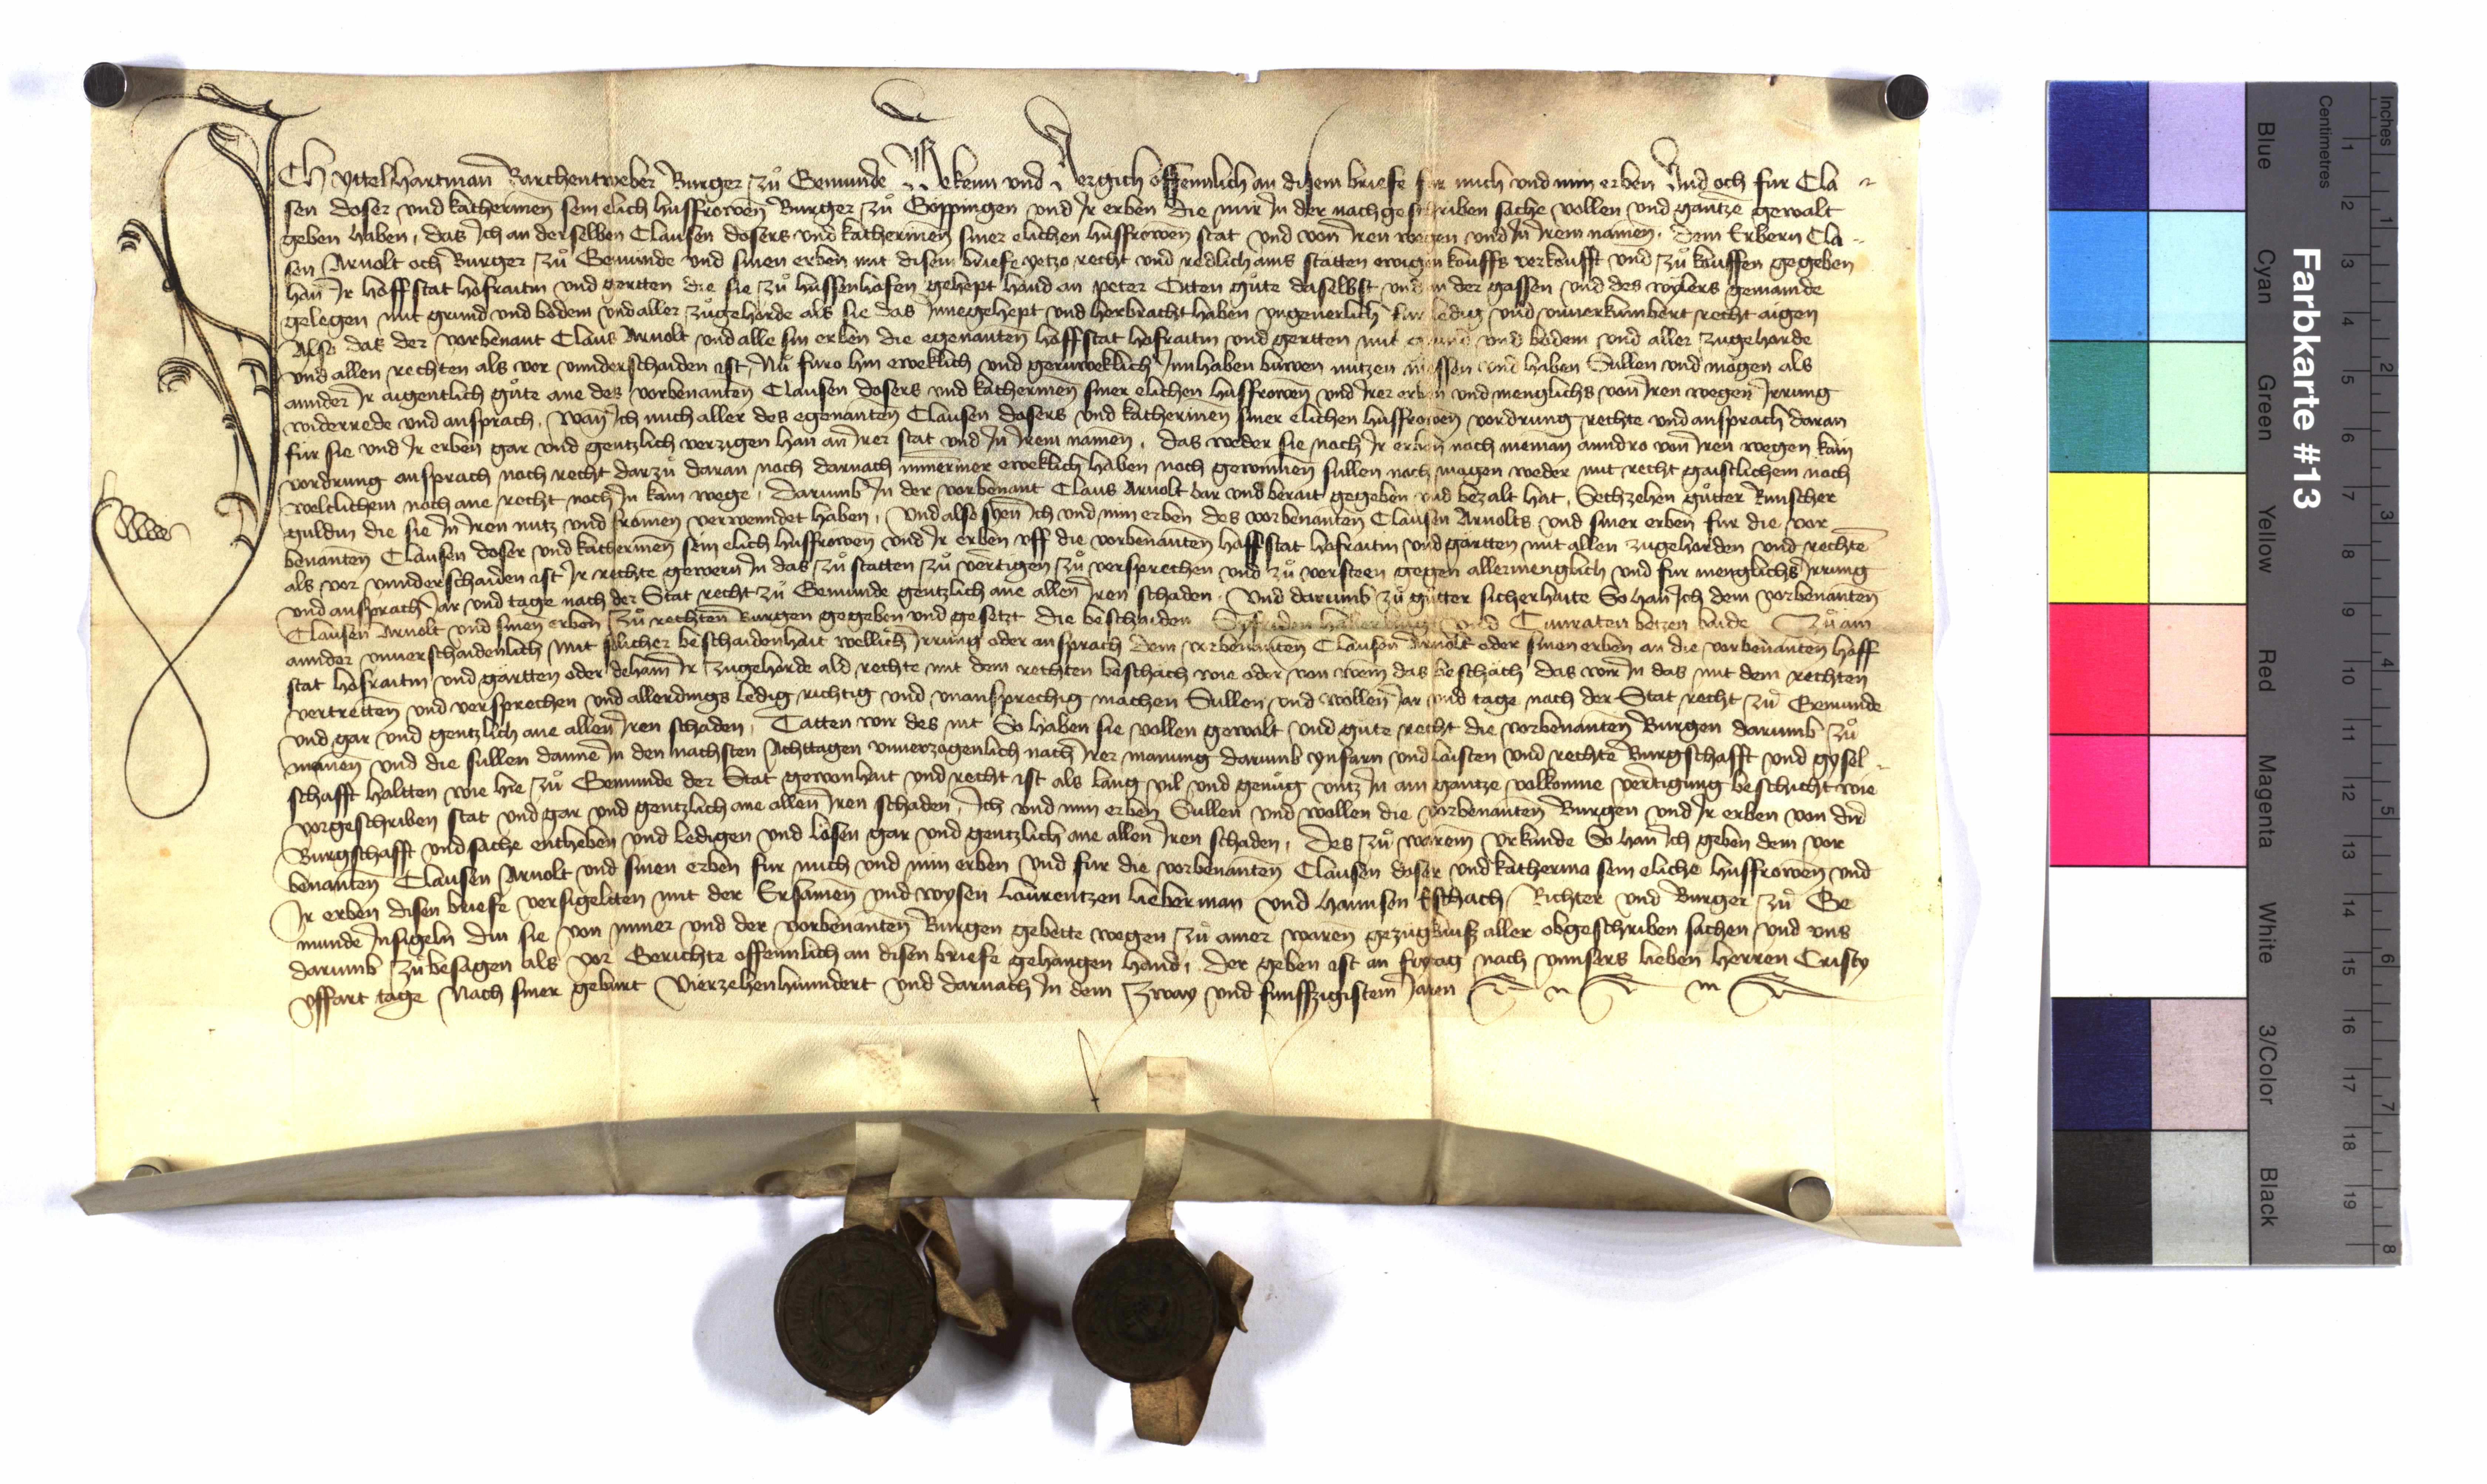 ICH Vttelhartman Barchentweber Burger zů Gemunde Bekenn vnd Vergich offennlich an disem briefe fur mich vnd min erben Vnd och fur Cla
sen doser vnd katherinen sein elich husfrowen Burger zů Goppingen vnd Ir erben die mir In der nachgeschriben sache vollen vnd gantze gewalt
geben haben, das Ich an derselben Clausen dosers vnd katherinen siner elichen husfrowen stat vnd von Iren wegen vnd In Irem namen, dem Erbern Cla
sen Arnolt och Burger zů Gemunde vnd sinen erben mit disem briefe yetzo recht vnd redlich ains statten ewigen kouffs verkoufft vnd zů kouffen gegeben
han Ir hoffstat hofraitin vnd gertten die sie zů hussenhofen gehept hand an peter Citen gůte daselbst vnd an der gassen vnd des wylers gemainde
gelegen mit grund vnd bodem vnd aller zůgehorde als sie das Innegehept vnd herbracht haben vngeuerlich fur ledig vnd vnuerkumbert recht aigen
Also das der vorbenant Claus Arnolt vnd alle sin erben die egenanten hoffstat hofraitin vnd gertten mit grund vnd bodem vnd aller zugehorde
vnd allen rechten als vor vnnderschaiden ist, Nů furo hin eweklich vnd geruweklich Innhaben buwen nutzen niessen vnd haben Sullen vnd mogen als
annder Ir aigentlich gůte ane des vorbenanten Clausen dosers vnd katherinen siner elichen husfrowen vnd Irer erben vnd menglichs von Iren wegen Irrung
widerrede vnd ansprach, Wan Ich mich aller des egenanten Clausen dosers vnd katherinen siner elichen husfrowen vordrung rechte vnd ansprach daran
fur sie vnd Ir erben gar vnd gentzlich verzigen han an Irer stat vnd In Irem namen, das weder sie noch Ir erben noch nieman anndro von Iren wegen kain
vordrung ansprach noch recht darzů daran noch darnach nimermer eweklich haben noch gewinnen sullen noch mogen weder mit recht gaistlichem noch
weltlichem noch ane recht noch In kain wege, Darumb In der vorbenant Claus Arnolt bar vnd berait gegeben vnd bezalt hat, Sechzehen gůtter Rinscher
guldin die sie In Iren nutz vnd fromen verwenndet haben, Vnd also syen Ich vnd min erben des vorbenanten Clausen Arnolts vnd siner erben fur die vor
benanten Clausen doser vnd katherinen sein elich husfrowen vnd Ir erben vff die vorbenanten hoffstat hofraitin vnd gartten mit allen zugehorden vnd rechte
als vor vnnderschaiden ist Ir rechte gewern In das zů statten zů vertigen zů versprechen vnd zů versteen gegen allermenglich vnd fur menglichs Irrung
vnd ansprach Jar vnd tage nach der Stat recht zů Gemunde gentzlich ane allen Iren schaden, Vnd darumb zů gůtter sicherhaite So han Ich dem vorbenanten
Clausen Arnolt vnd sinen erben zů rechten Burgen gegeben vnd gesetzt die beschaiden vnd Cunraten betzen baide Zů ain
annder vnuerschaidenlich Mit solicher beschaidenhait wellich Irrung oder ansprach dem vorbenanten Clausen Arnolt oder sinen erben an die vorbenanten hoff
stat hofraitin vnd gartten oder dehain Ir zugehorde ald rechte mit dem rechten beschach wie oder von wem das beschach das wir In das mit dem rechten
vertretten vnd versprechen vnd allerdings ledig richtig vnd vnansprechig machen Sullen vnd wollen Jar vnd tage nach der Stat recht zů Gemunde
vnd gar vnd gentzlich ane allen Iren schaden, Tatten wir des nit So haben sie vollen gewalt vnd gute recht die vorbenanten Burgen darumb zů
manen vnd die sullen danne In den nachsten Achttagen vnuerzogenlich nach Irer manung darumb ynfarn vnd laisten vnd rechte Burgschafft vnd gysel
schafft haltten wie hie zů Gemunde der Stat gewonhait vnd recht ist als lang vil vnd genůg vntz In ain gantze volkomne vertigung beschicht wie
vorgeschriben stat vnd gar vnd gentzlich ane allen Iren schaden, Ich vnd min erben Sullen vnd wollen die vorbenanten Burgen vnd Ir erben von dir
Burgschafft vnd sache entheben vnd ledigen vnd losen gar vnd gentzlich ane allen Iren schaden, Des zů warem vrkunde So han Ich geben dem vor
benanten Clausen Arnolt vnd sinen erben fur mich vnd min erben vnd fur die vorbenanten Clausen doser vnd katherina sein eliche husfrowen vnd
Ir erben disen briefe versigeltten mit der Ersamen vnd wysen Laurentzen Lieberman vnd Hannsen Eschach Richter vnd Burger zů Ge
munde Insigeln die sie von miner vnd der vorbenanten Burgen gebette wegen zů ainer waren gezugknuß aller obgeschriben sachen vnd vns
darumb zů besagen als vor Gerichte offennlich an disen briefe gehangen hand, Der geben ist an frytag nach vnnsers lieben herren Cristy
vffart tage Nach siner geburt Vierzehenhunndert vnd darnach In dem Zway vnd funffzigistem Jaren
Farbkarte #13
Blue Cyan Green Yellow Red Magenta White 3/Color Black
Centimetres 1 2 3 4 5 6 7 8 9 10 11 12 13 14 15 16 17 18 19
Inches 1 2 3 4 5 6 7 8